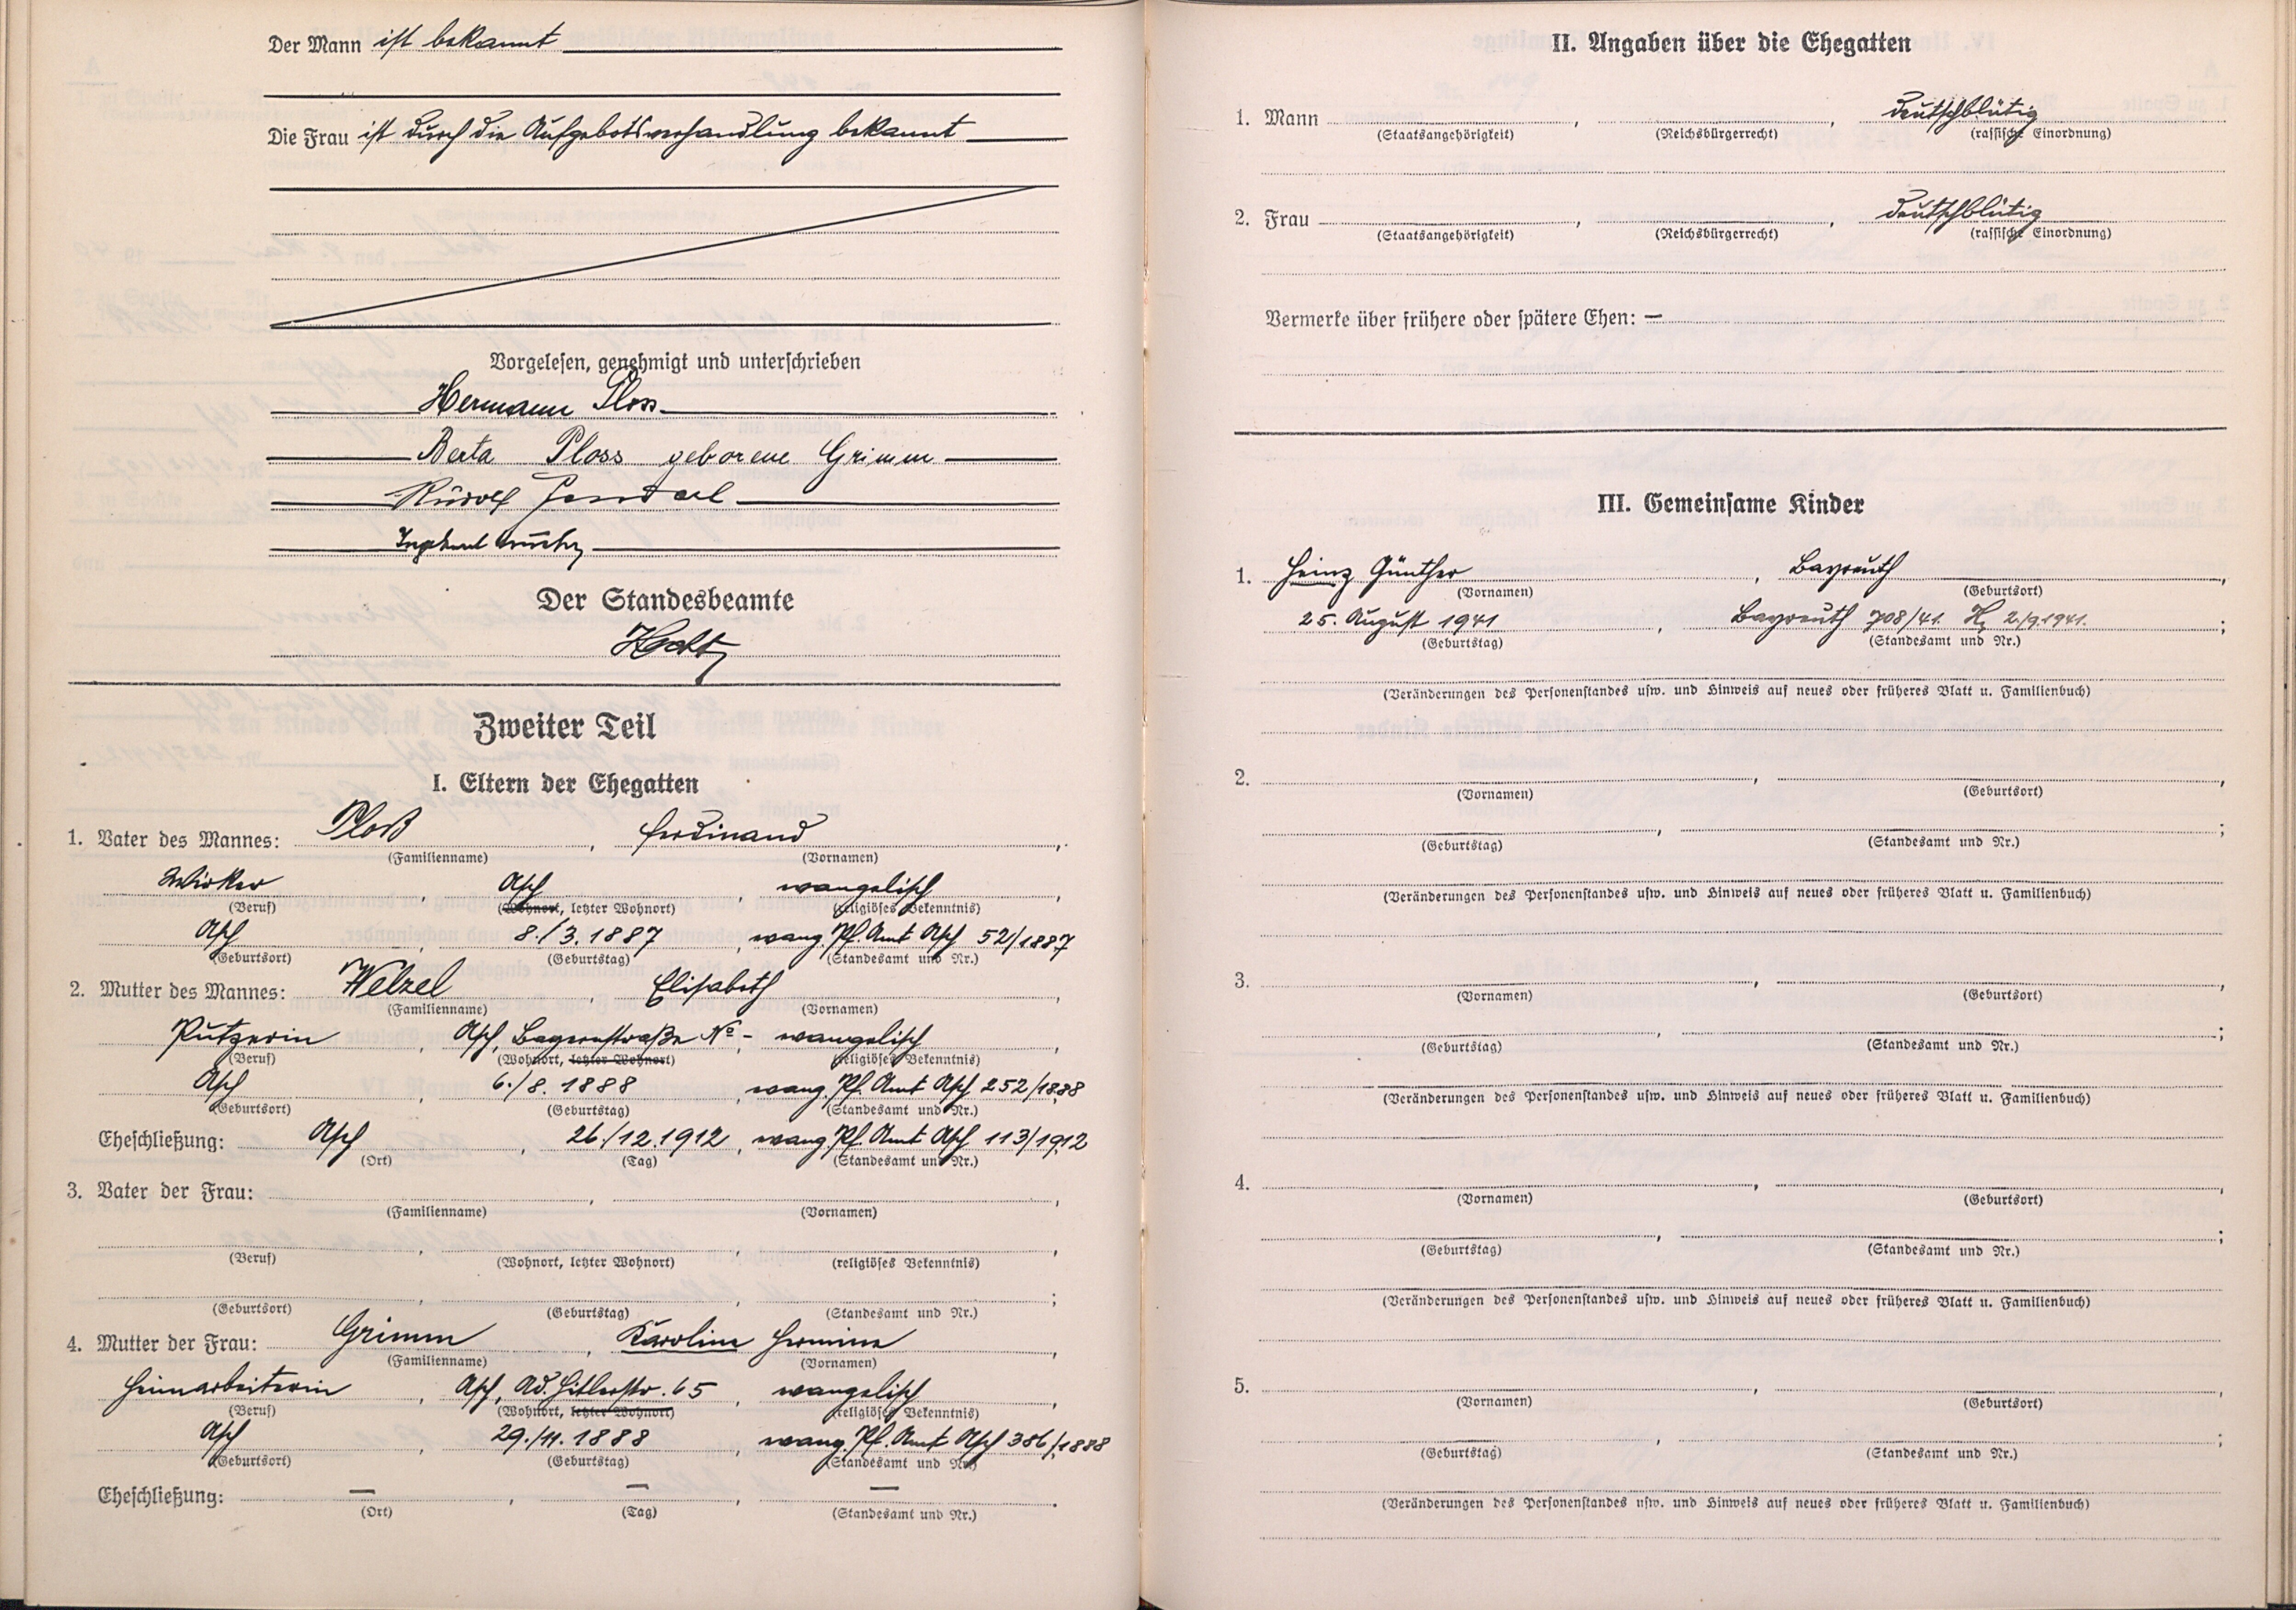 Der Mann ist bekannt
Die Frau ist durch die Aufgebotsverhandlung bekannt
Vorgelesen, genehmigt und unterschrieben
Hermann Ploss
Berta Ploss geborene Grimm
Rudolf
Der Standesbeamte
Zweiter Teil
I. Eltern der Ehegatten
1. Vater des Mannes: Ploß, Ferdinand,
(Familienname) (Vornamen)
Wirker, Asch, evangelisch,
(Beruf) (Wohnort, letzter Wohnort) (religiöses Bekenntnis)
Asch, 8./3. 1887, evang. Pf. Amt Asch 52/1887
(Geburtsort) (Geburtstag) (Standesamt und Nr.)
2. Mutter des Mannes: Welzel, Elisabeth,
(Familienname) (Vornamen)
Putzerin, Asch, Bayernstraße No - evangelisch,
(Beruf) (Wohnort, letzter Wohnort) (religiöses Bekenntnis)
Asch, 6./8. 1888, evang. Pf. Amt Asch 252/1888
(Geburtsort) (Geburtstag) (Standesamt und Nr.)
Eheschließung: Asch, 26./12.1912, evang. Pf. Amt Asch 113/1912
(Ort) (Tag) (Standesamt und Nr.)
3. Vater der Frau: , ,
(Familienname) (Vornamen)
, , ,
(Beruf) (Wohnort, letzter Wohnort) (religiöses Bekenntnis)
, , ;
(Geburtsort) (Geburtstag) (Standesamt und Nr.)
4. Mutter der Frau: Grimm, Karolina Hermine,
(Familienname) (Vornamen)
Heimarbeiterin, Asch, Ad. Hitlerstr. 65, evangelisch,
(Beruf) (Wohnort, letzter Wohnort) (religiöses Bekenntnis)
Asch, 29./11. 1888, evang. Pf. Amt Asch 386/1888
(Geburtsort) (Geburtstag) (Standesamt und Nr.)
Eheschließung: —, —, —.
(Ort) (Tag) (Standesamt und Nr.)
II. Angaben über die Ehegatten
1. Mann , , deutschblütig
(Staatsangehörigkeit) (Reichsbürgerrecht) (rassische Einordnung)
2. Frau , , deutschblütig
(Staatsangehörigkeit) (Reichsbürgerrecht) (rassische Einordnung)
Vermerke über frühere oder spätere Ehen: —
III. Gemeinsame Kinder
1. Heinz Günther, Bayreuth,
(Vornamen) (Geburtsort)
25. August 1941, Bayreuth 708/41. 2./9.1941.;
(Geburtstag) (Standesamt und Nr.)
(Veränderungen des Personenstandes usw. und Hinweis auf neues oder früheres Blatt u. Familienbuch)
2. , ,
(Vornamen) (Geburtsort)
, ;
(Geburtstag) (Standesamt und Nr.)
(Veränderungen des Personenstandes usw. und Hinweis auf neues oder früheres Blatt u. Familienbuch)
3. , ,
(Vornamen) (Geburtsort)
, ;
(Geburtstag) (Standesamt und Nr.)
(Veränderungen des Personenstandes usw. und Hinweis auf neues oder früheres Blatt u. Familienbuch)
4. , ,
(Vornamen) (Geburtsort)
, ;
(Geburtstag) (Standesamt und Nr.)
(Veränderungen des Personenstandes usw. und Hinweis auf neues oder früheres Blatt u. Familienbuch)
5. , ,
(Vornamen) (Geburtsort)
, ;
(Geburtstag) (Standesamt und Nr.)
(Veränderungen des Personenstandes usw. und Hinweis auf neues oder früheres Blatt u. Familienbuch)